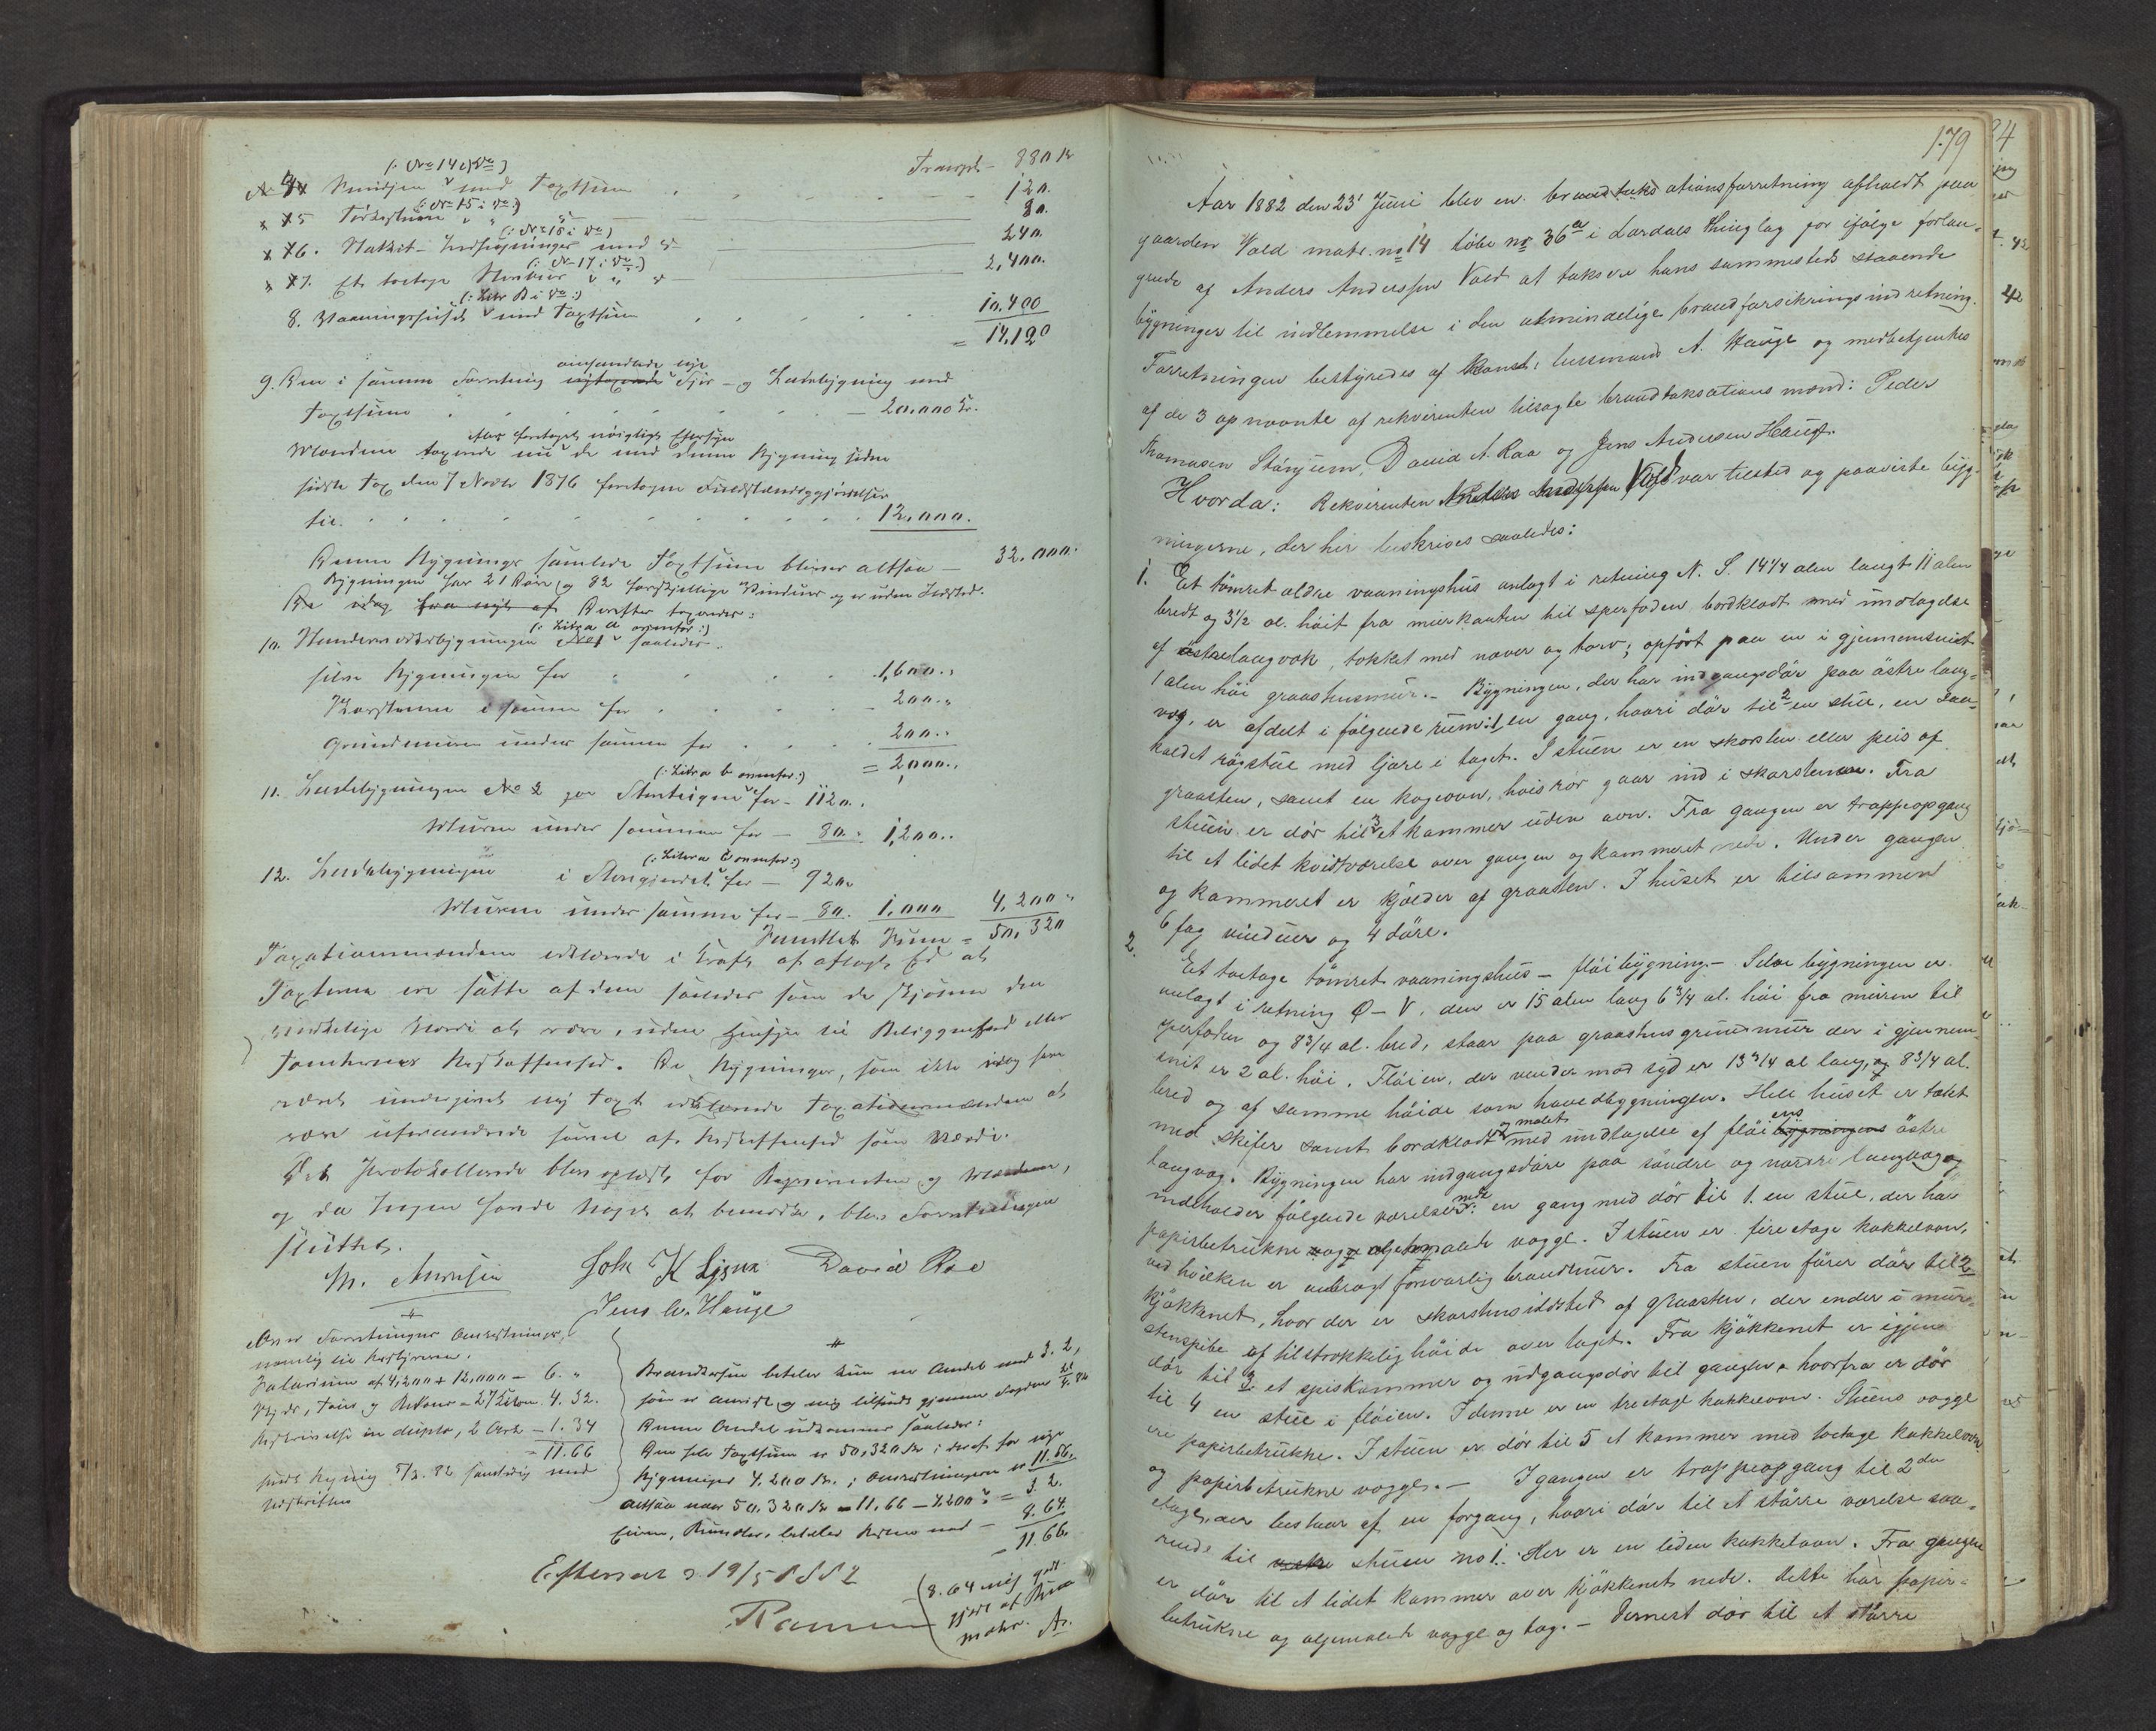 (: No 14 i do :)
Transpt - 880 Kr
No 4 Smidjen med Taxtsum 120.
(: No 15 i do :)
x 5 Törkestuen " " 80.
(: No 16 i do :)
x 6. med do 240.
(: No 17 i do :)
x 7. Et toetages " " 2,400.
(: Litr B i do :)
8. Vaaningshuset med Taxtsum 10,400
= 14,120
9. Den i samme Forretning omhandlede nye Fjös- og Ladebygning med
Taxtsum - 20.000 Kr.
efter foretaget nöiagtigt Eftersyn
Mændene taxerede nu de med denne Bygning siden
sidste Tax den 7 Novbr 1876 foretagne Fuldstændiggjörelser
til 12,000.
Denne Bygnings samlede Taxtsum bliver altsaa - 32.000.
Bygningen har 21 Döre og 82 forskjellige Vinduer og er uden Ildsted.
De idag fra nyt af Derefter taxeredes:
(: Litra a ovenfor :)
10. No 1 saaledes.
selve Bygningen for 1,600.,
Skorstenen i samme for 200.,
Grundmuren under samme for 200.,
= 2,000.,
(: Litra b ovenfor :)
11. Ladebygningen No 2 paa for - 1120.,
Muren under samme for - 80. 1,200.,
(: Litra c ovenfor :)
12. Ladebygningen i for - 920.
Muren under samme for - 80. 1,000 4,200 "
Samlet Sum = 50,320
Taxationsmændene erklærede i Kraft af aflagt Ed at
Taxterne ere satte af dem saaledes som de skjönne den
virkelige Værdi at være, uden Hensyn til Beliggenhed eller
Tomternes Beskaffenhed. De Bygninger, som ikke idag have
været undergivet ny Taxt erklærede Taxationsmændene at
være uforandrede saavel af Beskaffenhed som Værdi.
Det Protokollerede blev oplæst for Rekvirenten og Mændene,
og da Ingen havde Noget at bemærke, blev Forretningen
sluttet.
John K Ljsne David Rae
Jens A. Hauge
Denne Forretnings Omkostninger,
nemlig til Bestyreren.
Salarium af 4,200 + 12,000 - 6. "
4. 32.
Beskrivelse in duplo, 2 Ark - 1. 34
= 11.66
Brandkassen betaler kun en Andel med 3. 2,
Denne Andel udkommer saaledes:
Den hele Taxtsum er 50,320 Kr; deraf for nye
Bygninger 4,200 Kr.; Omkostningerne er 11.66.
altsaa naar 50,320 Kr - 11,66 - 4,200? = 3. 2.
Eieren, betaler Resten med - 8. 64.
= 11 66.
Efterseet d. 19/5 1882
8.64
179
Aar 1882 den 23' Juni blev en brandtaksationsforretning afholdt paa
gaarden Vold matr. no 14 löbe no 36a i Lærdals thinglag for ifölge forlan-
gende af Anders Anderssen Vold at taksere hans sammesteds staaende
bygninger til indlemmelse i den almindelige brandforsikringsindretning.
Forretningen bestyredes af konst. lensmand A. Hauge og medbetjentes
af de 3 opnævnte af rekvirenten tilsagte brandtaksationsmænd: Peder
Thomasen Stönjum, David A. Raa og Jens Andersen Hauge.
Hvorda: Rekvirenten Anders Anderssen Vold var tilsted og paaviste byg-
ningerne, der her beskrives saaledes:
1. Et tömret ældre vaaningshus anlagt i retning N. S. 14 1/4 alen langt 11 alen
bredt og 3 1/2 al. höit fra murkanten til sperfoden bordklædt med undtagelse
af östre langvæg, tækket med næver og torv; opfört paa en i gjennemsnit
1 alen höi graastensmur. - Bygningen, der har indgangsdör paa östre lang-
væg, er afdelt i fölgende rum: 1, en gang, hvori dör til 2 en stue, en saa-
kaldet rögstue med ljore i taget. I stuen er en skorsten eller peis af
graasten, samt en kogeovn, hvis rör gaar ind i skorstenen. Fra
stuen er dör til 3 et kammer uden ovn. Fra gangen er trappeopgang
til et lidet kvistværelse over gangen og kammeret nede. Under gangen
og kammeret er kjælder af graasten. I huset er tilsammen
6 fag vinduer og 4 döre.
2. Et toetages tömret vaaningshus - flöibygning - Selve bygningen er
anlagt i retning Ö - V. den er 15 alen lang 6 3/4 al. höi fra muren til
sperfoden og 8 3/4 al. bred, staar paa graastensgrundmur der i gjennem-
snit er 2 al. höi. Flöien, der vender mod syd er 13 3/4 al lang, og 8 3/4 al.
bred og af samme höide som hovedbygningen. Hele huset er tækt
med skifer samt bordklædt og malet med undtagelse af flöiens bygningens östre
langvæg. Bygningen har indgangsdöre paa söndre og nordre langvæg og
indeholder fölgende værelser nede: en gang med dör til 1. en stue, der har
papirbetrukne og oljemalede vægge. I stuen er fireetages kakkelovn,
ved hvilken er anbragt forsvarlig brandmur. Fra stuen förer dör til 2
kjökkenet, hvor der er skorstensildsted af graasten, der ender i mur-
stenspibe af tilstrækkelig höide over taget. Fra kjökkenet er igjen
dör til 3 et spiskammer og udgangsdör til gangen, hvorfra er dör
til 4 en stue i flöien. I denne er en treetages kakkelovn. Stuens vægge
ere papirbetrukne. I stuen er dör til 5 et kammer med toetages kakkelovn
og papirbetrukne vægge. - I gangen er trappeopgang til 2den
etage, der bestaar af en forgang, hvori dör til et större værelse sva-
rende til vestre stuen no 1. Her er en liden kakkelovn. Fra gangen
er dör til et lidet kammer over kjökkenet nede. Dette har papir-
betrukne og oljemalede vægge og tag. - Dernæst dör til et större